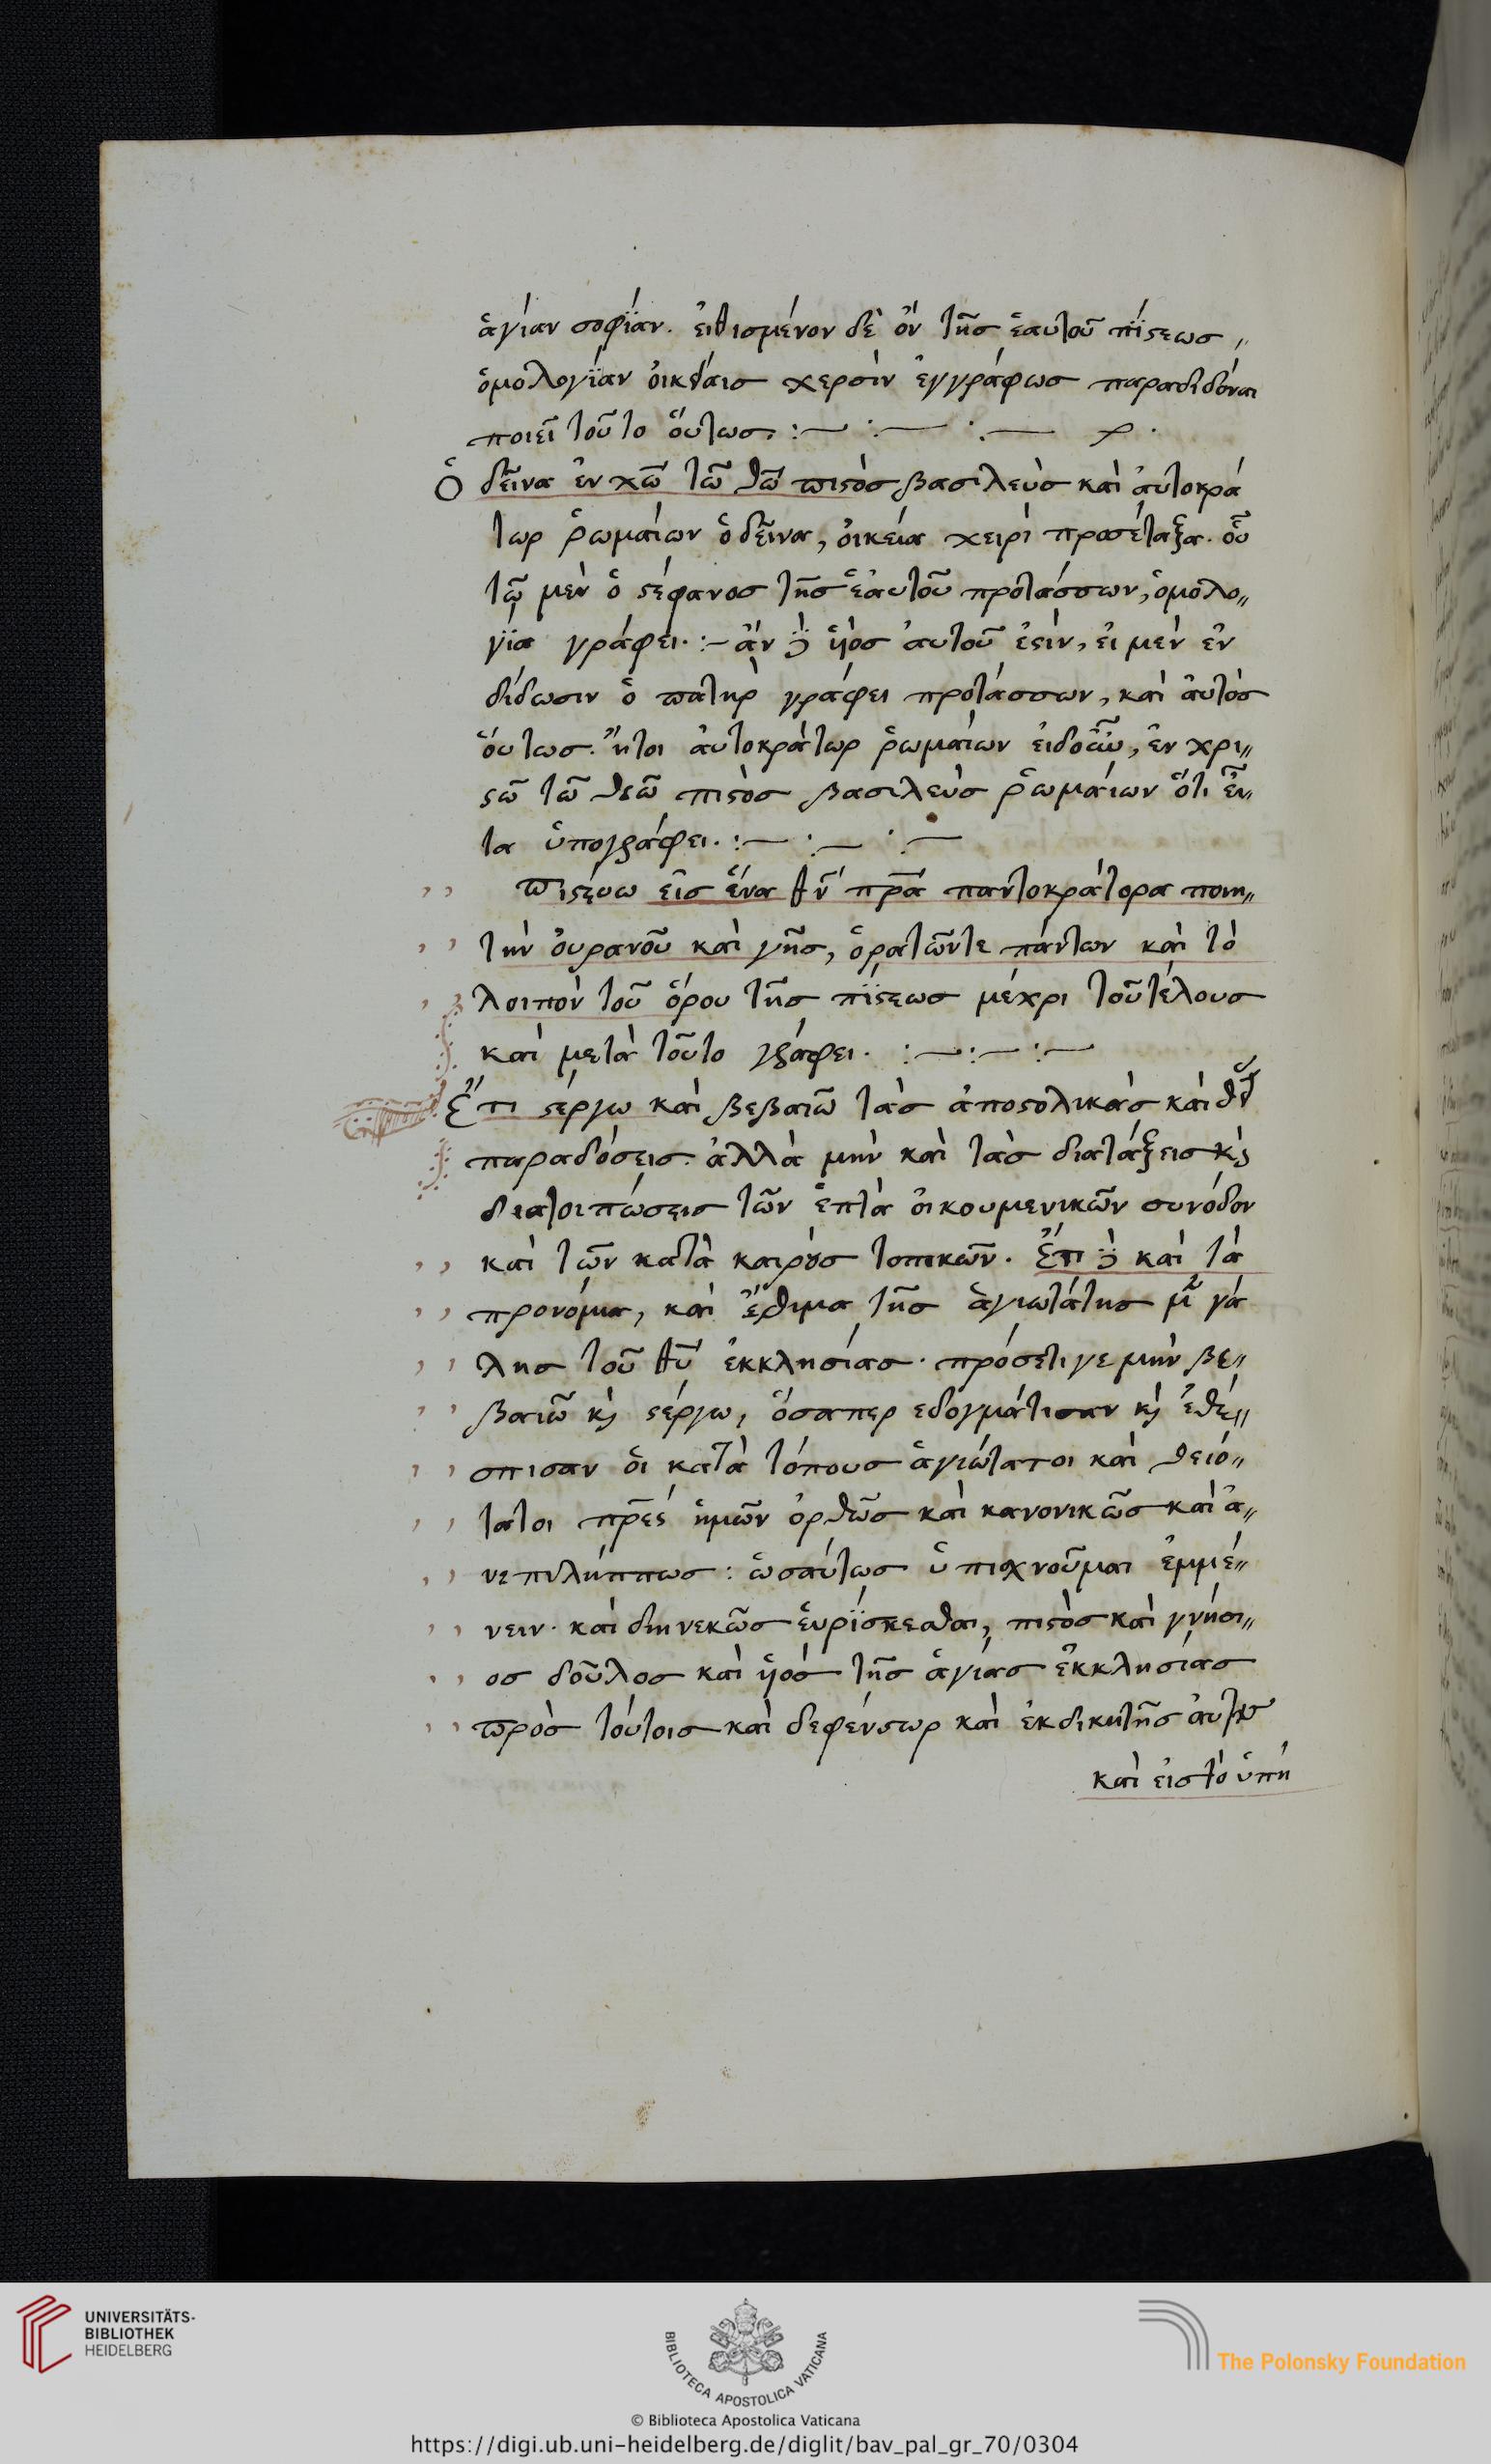 ἁγίαν σοφΐαν. ἐιθισμένον δὲ ὂν τῆσ ἑαυτοῦ πΐϛεωσ
ὁμολογΐαν ὀικείαισ χερσὶν ἐγγράφωσ παραδιδόναι
ποιεῖ τοῦτο ὅυτωσ. :— ·— ·—
Ὁ δεῖνα ἐν χῶ τῶ θῶ πιϛὸσ βασιλεὺσ καὶ ἀυτοκρά
τωρ ῥωμαίων ὁ δεῖνα, ὀικεία χειρὶ προσέταξα. ὅυ
τῶ μὲν ὁ ϛέφανοσ τῆσ ἑαυτοῦ προτάσσων, ὁμολο„
γΐα γράφει. :– ἂν ὑὸσ ἀυτοῦ ἐϛὶν, ἐι μὲν ἐν
δίδωσιν ὁ πατὴρ γράφει προτάσσων, καὶ ἀυτὸσ
ὅυτωσ. ἤτοι ἀυτοκράτωρ ῥωμαίων ἐν χρι„
ϛῶ τῶ θεῶ πιϛὸσ βασιλεὺσ ῥωμαίων ὅτι εἶ„
τα ὑπογράφει. :— ·— ·—
πιϛεύω εἰσ ἕνα θν πρα παντοκράτορα ποιη„
τὴν ὀυρανοῦ καὶ γῆσ, ὁρατῶντε πάντων καὶ τὸ
λοιπὸν τοῦ ὅρου τῆσ πΐϛεωσ μέχρι τοῦ τέλουσ
καὶ μετὰ τοῦτο γράφει. :—:—:—
Ἔτι ϛέργω καὶ βεβαιῶ τὰσ ἀποϛολικὰσ καὶ
παραδόσεισ. ἀλλὰ μὴν καὶ τὰσ διατάξεισ κὶ
διατοιπώσεισ τῶν ἑπτὰ ὀικουμενικῶν συνόδον
καὶ τῶν κατὰ καιροὺσ τοπικῶν. Ἔτι καὶ τὰ
προνόμια, καὶ ἔθιμα τῆσ ἁγιωτάτησ μεγά
λησ τοῦ θυ ἐκκλησίασ. πρόσετι γε μὴν βε„
βαιῶ κὶ ϛέργω, ὅσαπερ εδογμάτισαν κὶ ἐθέ„
σπισαν ὁι κατὰ τόπουσ ἁγιώτατοι καὶ θειό„
τατοι πρεσ ἡμῶν ὀρθῶσ καὶ κανονικῶσ καὶ ἀ„
νεπιλήππωσ : ὡσαύτωσ ὑπισχνοῦμαι ἐμμέ„
νειν. καὶ διηνεκῶσ ἑυρΐσκεσθαι, πιϛὸσ καὶ γνήσι„
οσ δοῦλοσ καὶ ὑὸσ τῆσ ἁγίασ ἐκκλησίασ
πρὸσ τούτοισ καὶ δεφένσωρ καὶ ἐκδικητῆσ ἀυτῆσ
καὶ εἰσ τὸ ὑπή
UNIVERSITÄTS-
BIBLIOTHEK
HEIDELBERG
BIBLIOTECA APOSTOLICA VATICANA
The Polonsky Foundation
© Biblioteca Apostolica Vaticana
https://digi.ub.uni-heidelberg.de/diglit/bav_pal_gr_70/0304